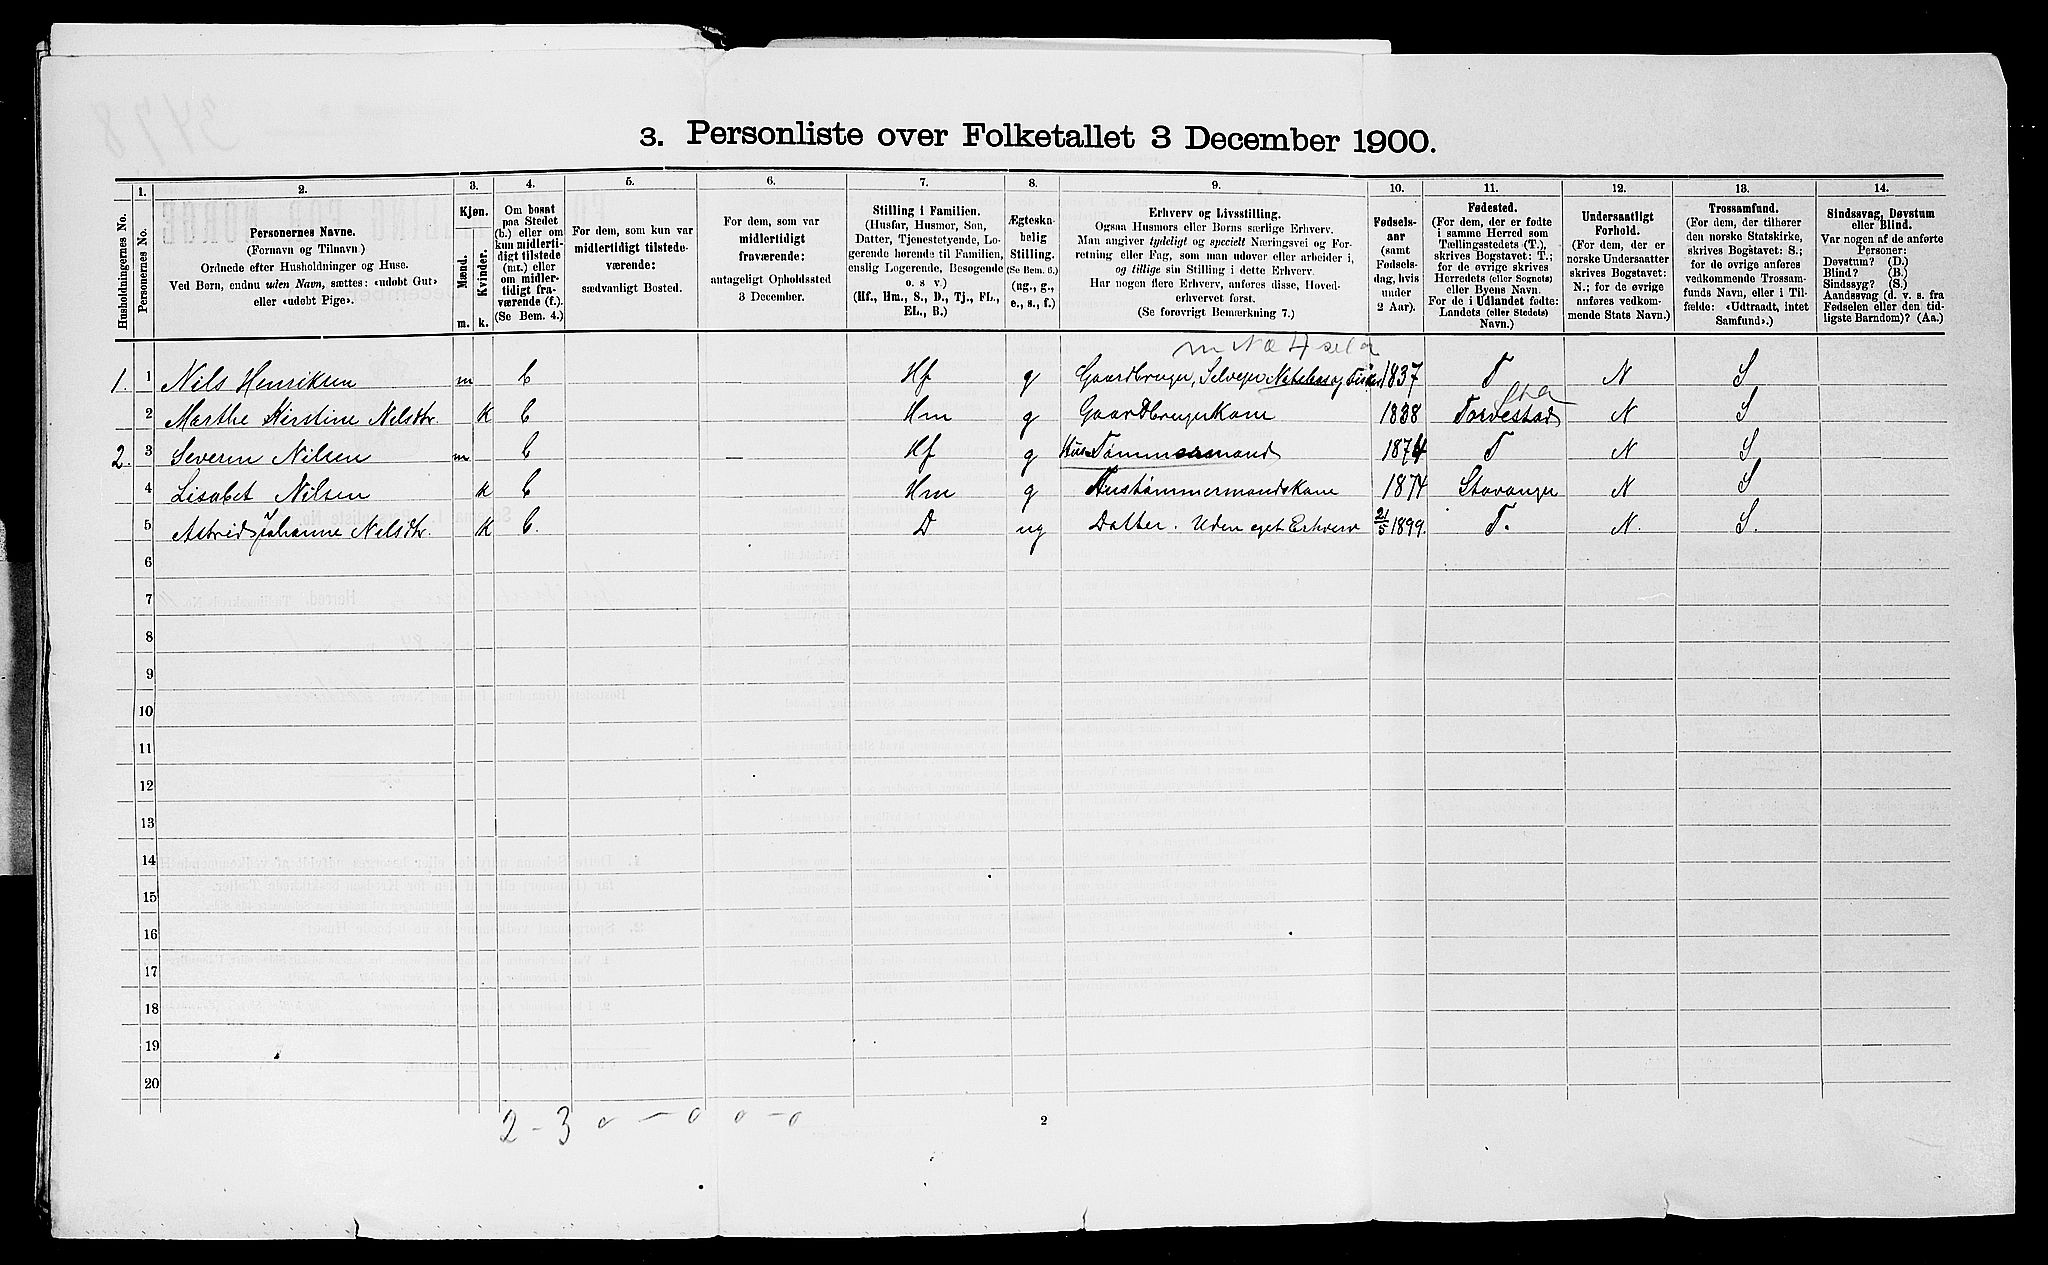 3. Personliste over Folketallet 3 December 1900.
Husholdningernes No.
1.
Personernes No.
2.
Personernes Navne.
(Fornavn og Tilnavn.)
Ordnede efter Husholdninger og Huse.
Ved Børn, endnu uden Navn, sættes: «udøbt Gut»
eller «udøbt Pige».
3.
Kjøn.
Mænd.
Kvinder.
m.
k.
4.
Om bosat
paa Stedet
(b.) eller om
kun midlerti-
digt tilstede
(mt.) eller
om midler-
tidigt fra-
værende (f.).
(Se Bem. 4.)
5.
For dem, som kun var
midlertidigt tilstede-
værende:
sædvanligt Bosted.
6.
For dem, som var
midlertidigt
fraværende:
antageligt Opholdssted
3 December.
7.
Stilling i Familien.
(Husfar, Husmor, Søn,
Datter, Tjenestetyende, Lo-
gerende hørende til Familien,
enslig Logerende, Besøgende
o. s v.)
(Hf., Hm., S., D., Tj., FL.,
EL., B.)
8.
Ægteska-
belig
Stilling.
(Se Bem. 6.)
(ug., g.,
e., s., f.)
9.
Erhverv og Livsstilling.
Ogsaa Husmors eller Børns særlige Erhverv.
Man angiver tydeligt og specielt Næringsvei og For-
retning eller Fag, som man udøver eller arbeider i,
og tillige sin Stilling i dette Erhverv.
Har nogen flere Erhverv, anføres disse, Hoved-
erhvervet først.
(Se forøvrigt Bemærkning 7.)
10.
Fødsels-
aar
(samt
Fødsels-
dag, hvis
under
2 Aar).
11.
Fødested.
(For dem, der er fødte
i samme Herred som
Tællingsstedets (T.),
skrives Bogstavet: T.;
for de øvrige skrives
Herredets (eller Sognets)
eller Byens Navn.
For de i Udlandet fødte:
Landets (eller Stedets)
Navn.)
12.
Undersaatligt
Forhold.
(For dem, der er
norske Undersaatter
skrives Bogstavet:
N.; for de øvrige
anføres vedkom-
mende Stats Navn.)
13.
Trossamfund.
(For dem, der tilhører
den norske Statskirke,
skrives Bogstavet: S.;
for de øvrige anføres
vedkommende Trossam-
funds Navn, eller i Til-
fælde: «Udtraadt, intet
Samfund».)
14.
Sindssvag, Døvstum
eller Blind.
Var nogen af de anførte
Personer:
Døvstum? (D.)
Blind? (B.)
Sindssyg? (S.)
Aandssvag (d. v. s. fra
Fødselen eller den tid-
ligste Barndom)? (Aa.)
1. 1 Nils Henriksen m b Hf g Gaardbruger, Selveier 1837 T N S
2 Marthe Kirstine Nelsdtr. k b Hm g Gaardbrugerkone 1838 Torvestad N S
2. 3 Severin Nilsen m b Hf g Hus Tømmermand 1874 T N S
4 Lisabet Nilsen k b Hm g Hustømmermandskone 1874 Stavanger N S
5 Astrid Johanne Nelsdtr. k b. D ug Datter. Uden eget Erhverv 21/5 1899. T. N. S.
6
7
8
9
10
11
12
13
14
15
16
17
18
19
20
2 - 3 0 - 0 0 - 0
2